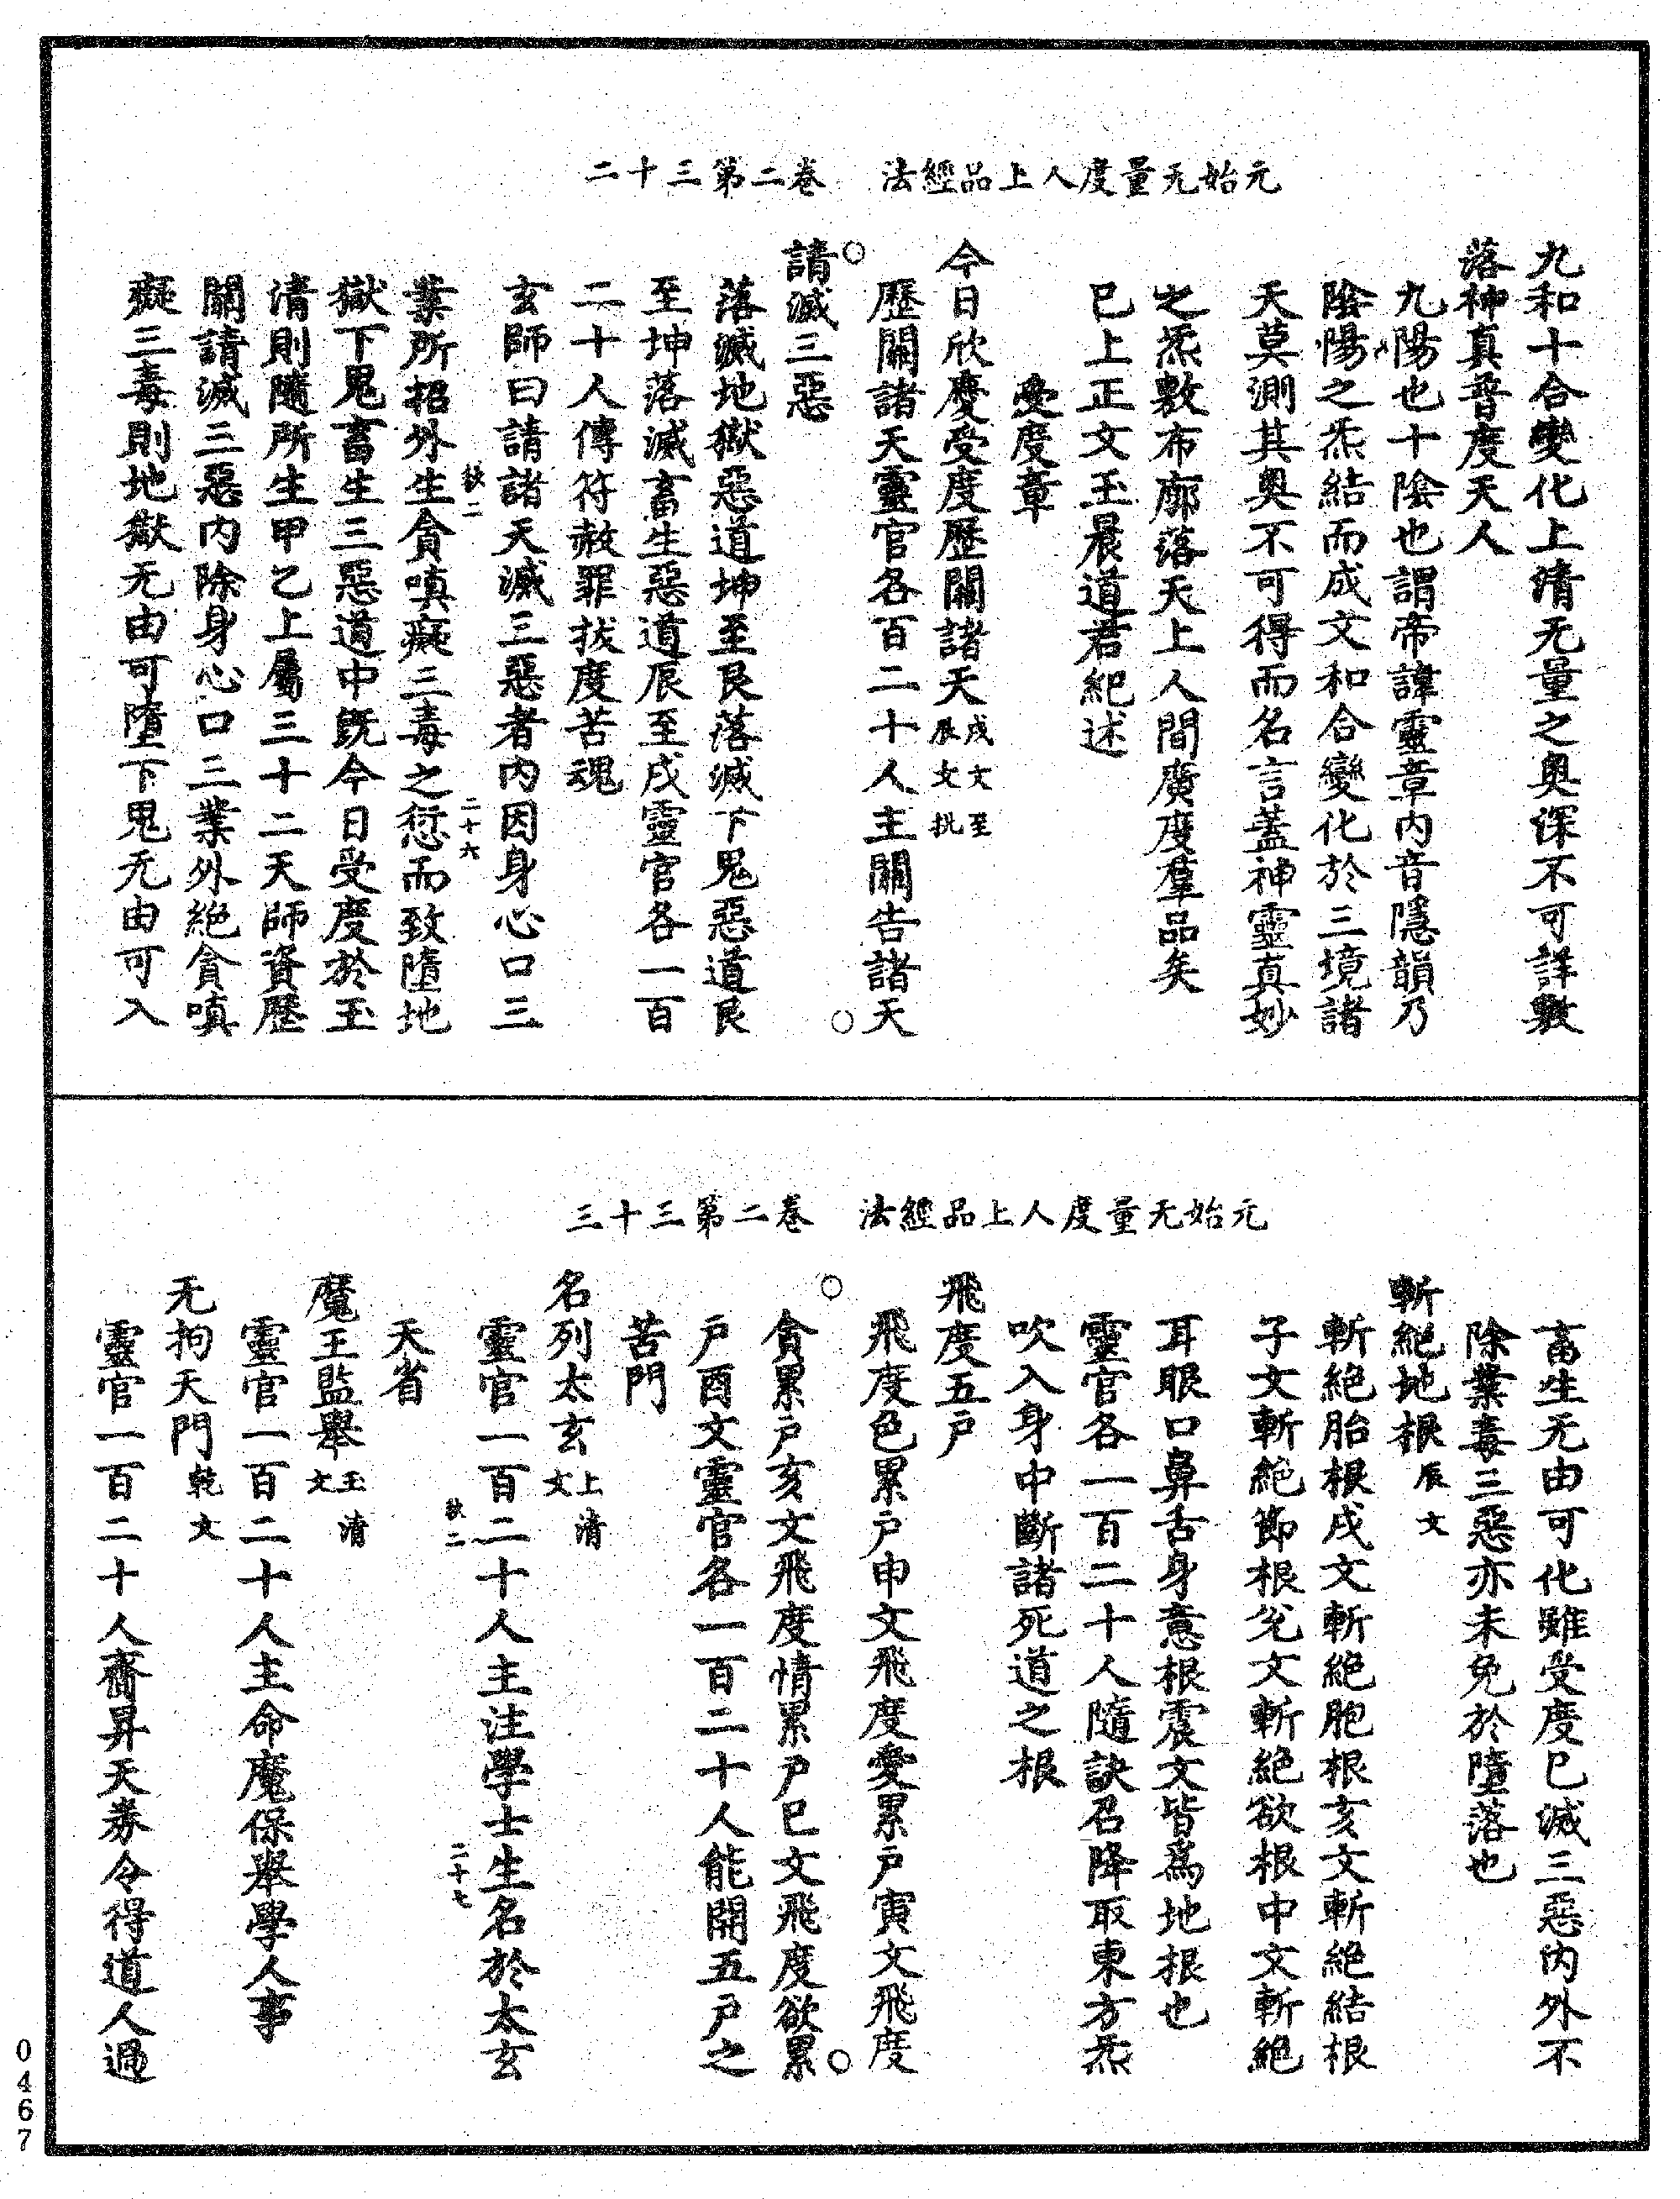 元始无量度人上品經法　卷二第三十二
九和十合變化上清无量之奧深不可詳敷
落神真普度天人
九陽也十陰也謂帝諱靈章內音隱韻乃
陰陽之炁結而成文和合變化於三境諸
天莫測其奧不可得而名言蓋神靈真妙
之炁敷布廓落天上人間廣度羣品矣
已上正文玉晨道君紀述
受度章
今日欣慶受度歷關諸天戌文至辰文批
歷關諸天靈官各百二十人主關告諸天
請滅三惡
落滅地獄惡道坤至艮落滅下鬼惡道艮
至坤落滅畜生惡道辰至戌靈官各一百
二十人傳符赦罪拔度苦魂
玄師曰請諸天滅三惡者內因身心口三
二十六
業所招外生貪嗔癡三毒之愆而致墮地
獄下鬼畜生三惡道中既今日受慶於玉
清則隨所生甲乙上屬三十二天師資歷
關請滅三惡內除身心口三業外絕貪嗔
癡三毒則地獄无由可墮下鬼无由可入
元始无量度人上品經法　卷二第三十三
畜生无由可化雖受度已滅三惡內外不
除業毒三惡亦未免於墮落也
斬絕地根辰文
斬絕胎根戌文斬絕胞根亥文斬絕結根
子文斬絕節根兌文斬絕欲根中文斬絕
耳眼口鼻舌身意根震文皆爲地根也
靈官各一百二十人隨訣召降取東方炁
吹入身中斷諸死道之根
飛度五戶
飛度色累戶申文飛度愛累戶寅文飛度
貪累戶亥文飛度情累戶巳文飛度欲累
戶酉文靈官各一百二十人能開五戶之
苦門
名列太玄上清文
靈官一百二十人主注學士生名於太玄
二十七
天省
魔王監舉玉清文
靈官一百二十人主命魔保舉學人事
无拘天門乾文
靈官一百二十人齎昇天券令得道人過
0467